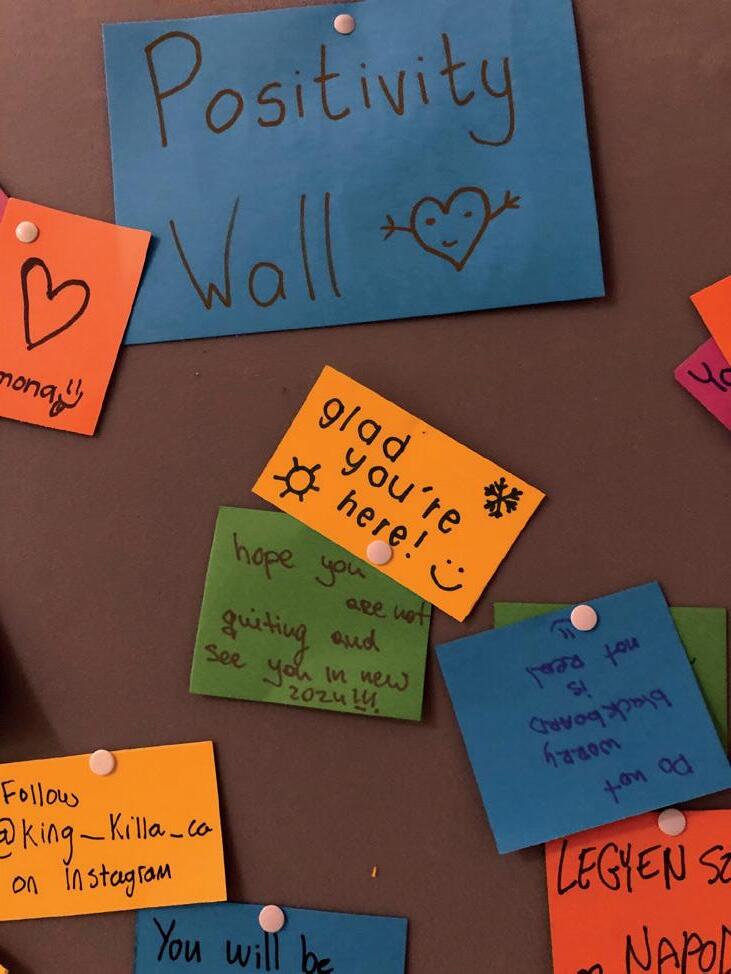 Positivity
Wall
glad
you're
here!
hope you
are not
quiting and
see you in new
2024!!!
Do not
worry
blackboard
is
not real
Follow
@king_Killa_ca
on Instagram
You will be
LEGYEN